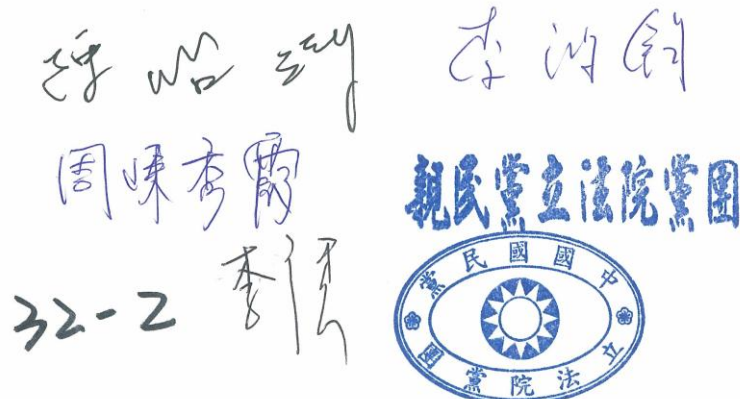 李鴻鈞
周陳秀霞
親民黨立法院黨團
32-2
中國國民黨
立法院黨團